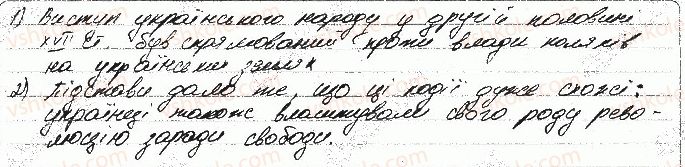 1) Виступ українського народу у другій половині
XVII ст. був спрямований проти влади поляків
на українських землях
2) Підстави дало те, що ці події дуже схожі:
українці також влаштували свого роду рево-
люцію заради свободи.